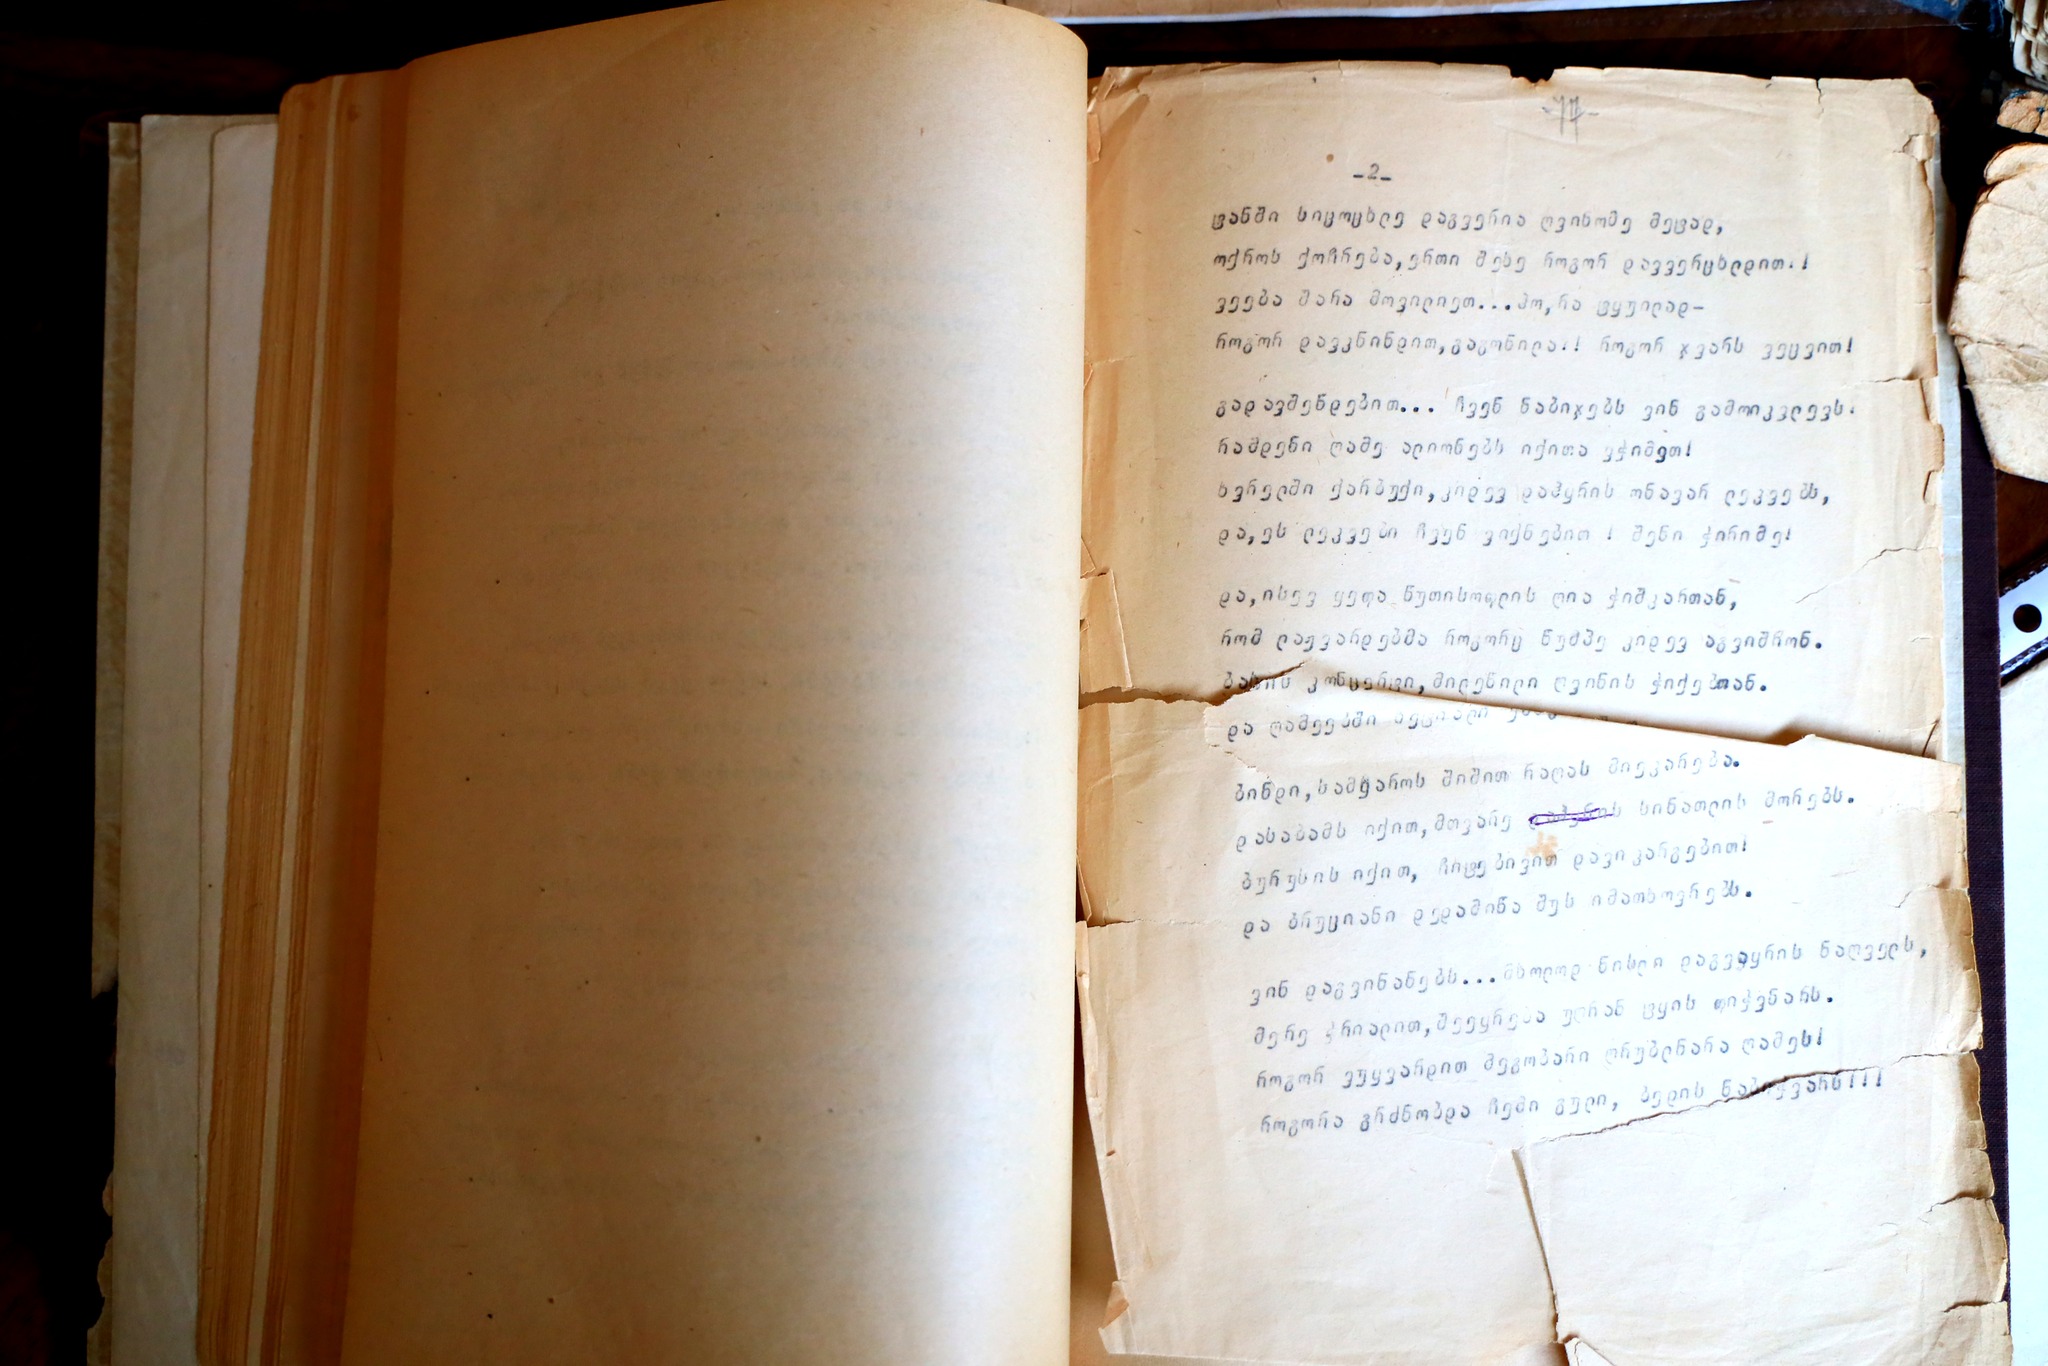 -77-
-2-
ტანში სიცოცხლე დაგვერია ღვისომე მეტად,
ოქროს ქოჩრება, ერთი მესე როგორ დავვერცხლდით!!
ვეება შარა მოვილიეთ...ჰო, რა ტყუილად-
როგორ დავკნინდით, გაგონილა!! როგორ ჯვარს ვეცვით!
გადავშენდებით... ჩვენ ნაბიჯებს ვინ გამოიკვლევს.
რამდენი ღამე ალიონებს იქითა ვჭიმეთ!
სვრელში ქარბუქი, კიდევ დაჰყრის ონავარ ლეკვებს,
და, ეს ლეკვები ჩვენ ვიქნებით ! შენი ჭირიმე!
და, ისევ ყეფა წუთისოფლის ღია ჭიშკართან,
რომ ლაჟვარდებმა როგორც ნუშპე კიდევ აგვიშრონ.
კონცერტი, მილეწილი ღვინის ჭიქებთან.
და ღამეებში
ბინდი, სამყაროს შიშით რაღას მიეკარება.
დასაბამს იქით, მთვარე სინათლის მორებს.
ბურუსის იქით, ჩიტებივით დავიკარგებით!
და ბრუციანი დედამიწა შუს იმათხოვრებს.
ვინ დაგვინანებს...მხოლოდ ნისლი დაგვაყრის ნაღველს,
მერე ჭრიალით, შეეყრება უღრან ტყის ფიჭვნარს.
როგორ ვუყვარდით მეგობარი ღრუბლნარა ღამეს!
როგორა გრძნობდა ჩემი გული, ბედის ნაბიჭვარს!!!